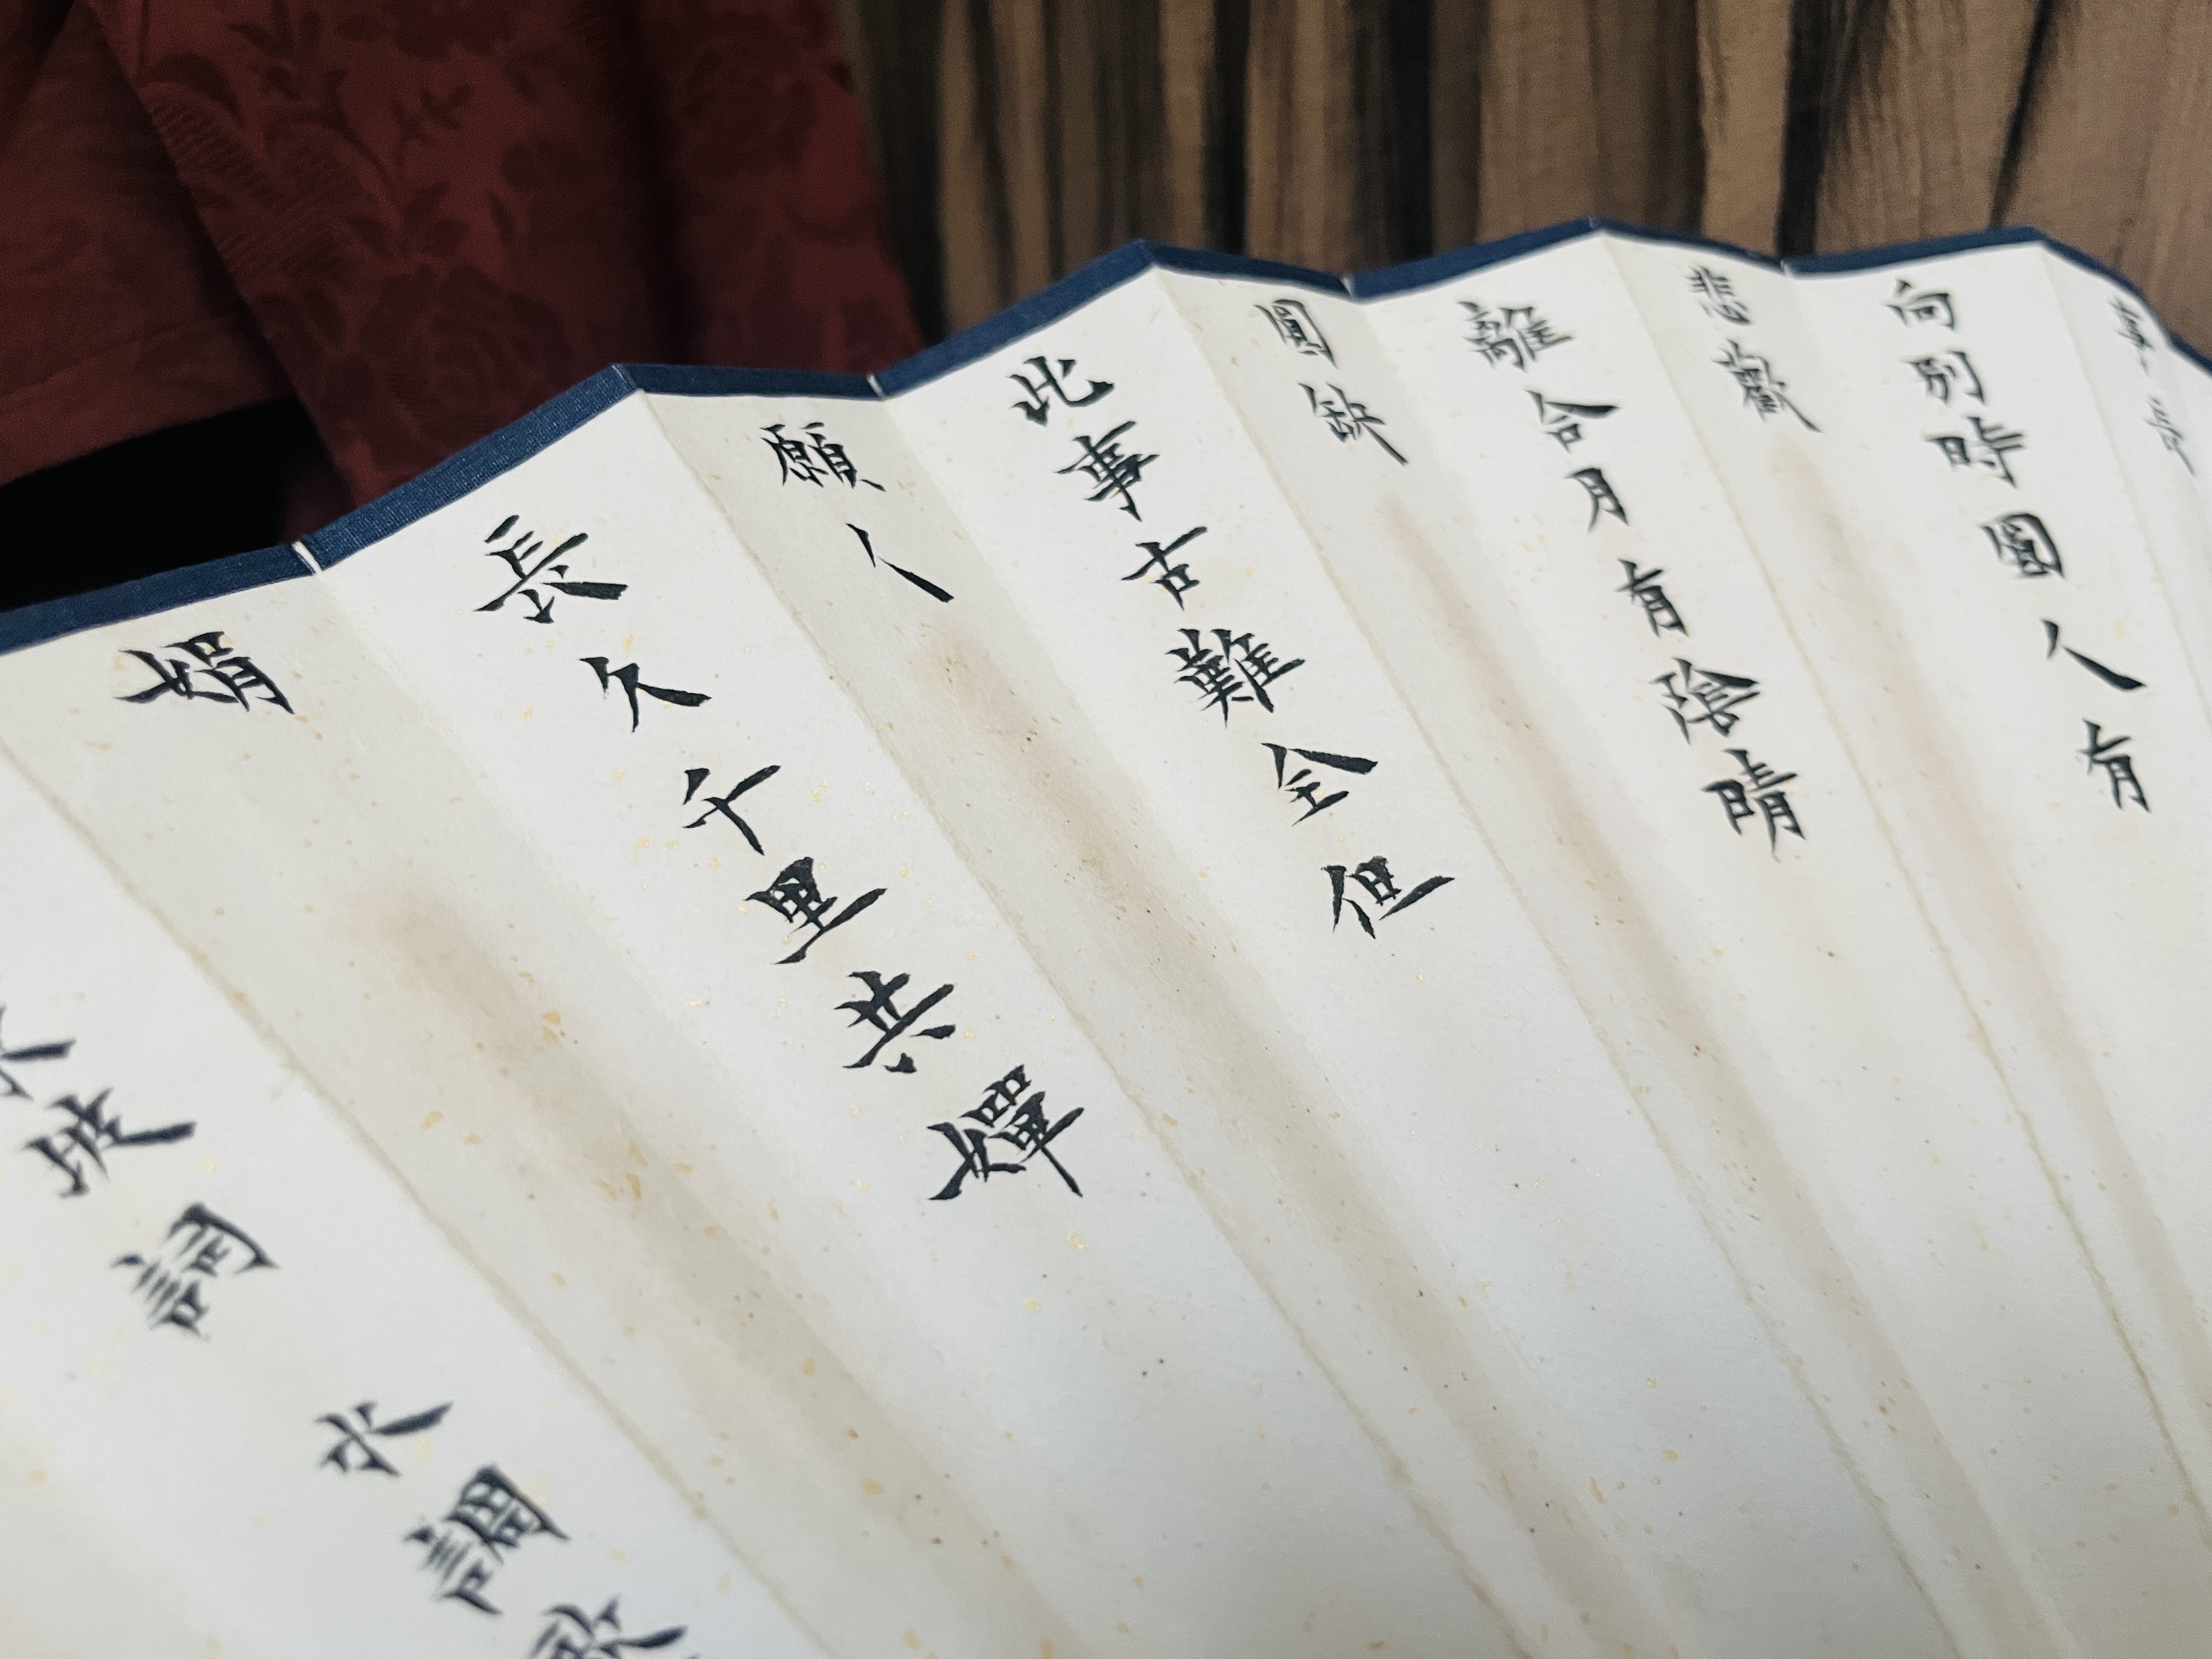 事長
向別時圓人有
悲歡
離合月有陰晴
圓缺
此事古難全但
願人
長久千里共嬋
娟
坡詞
水調歌